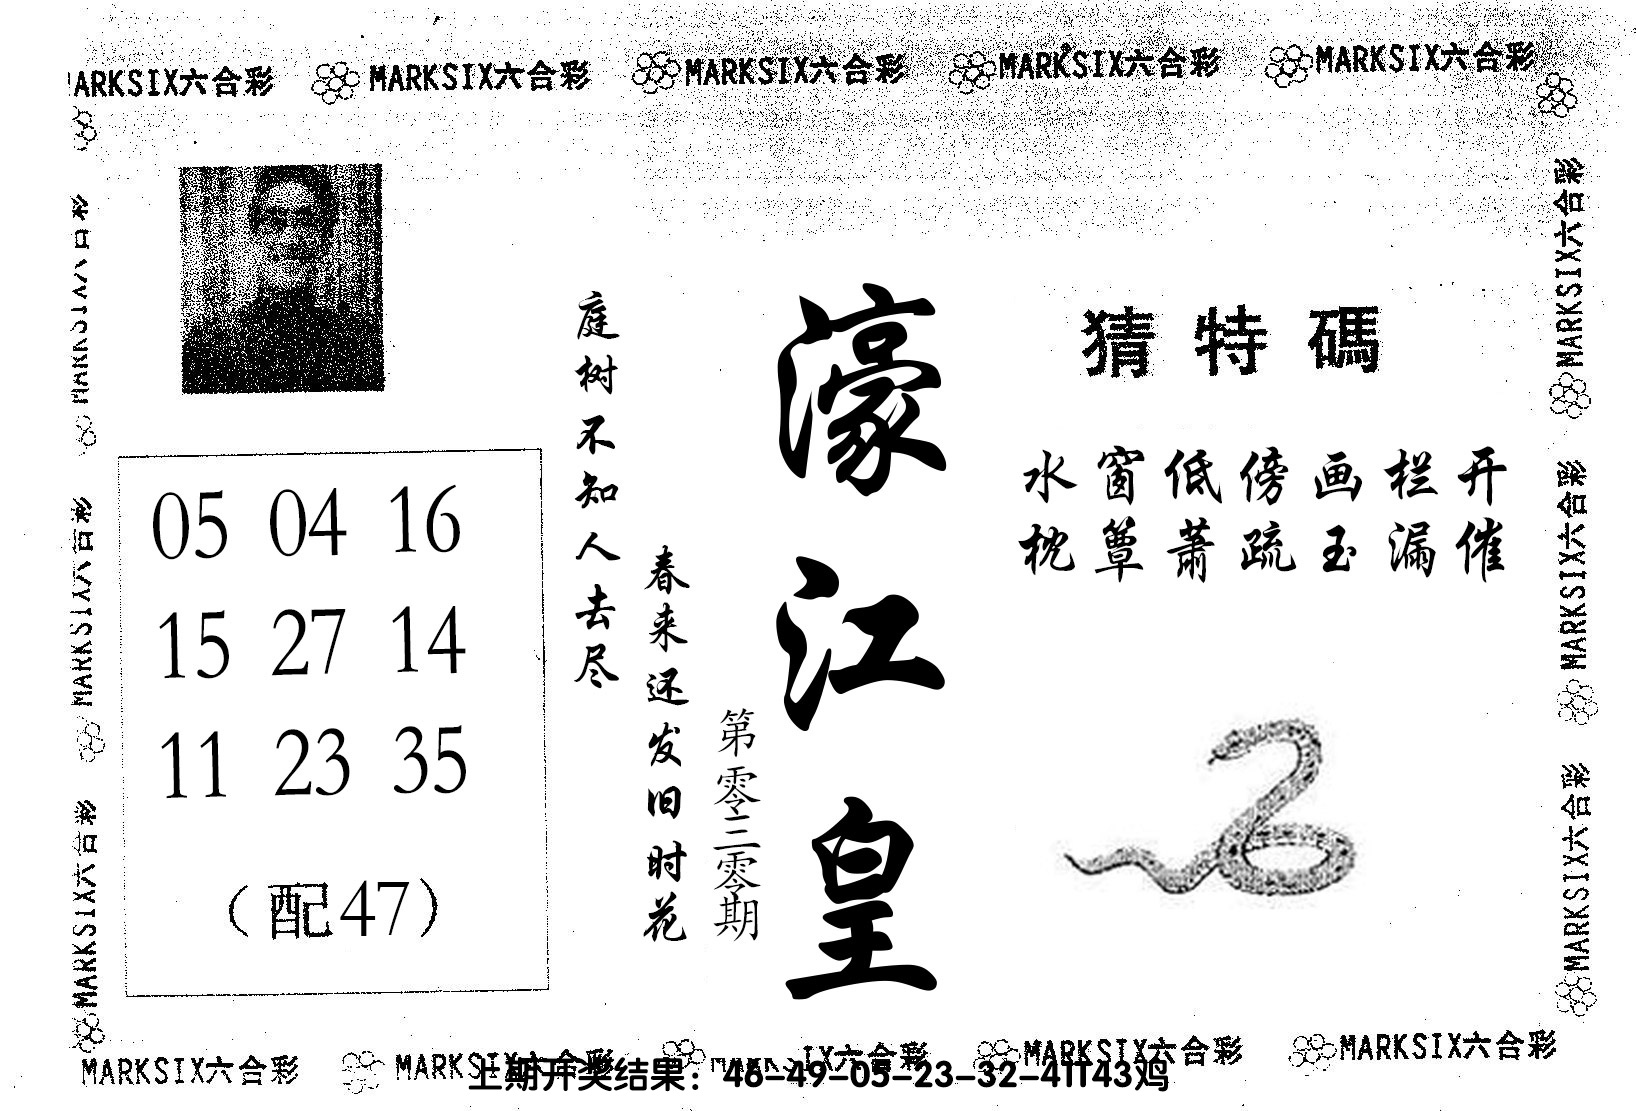 MARKSIX六合彩 MARKSIX六合彩 MARKSIX六合彩 MARKSIX六合彩 MARKSIX六合彩
猜特碼
水窗低傍画栏开
枕簟萧疏玉漏催
濠江皇
第零三零期
庭树不知人去尽
春来还发旧时花
05 04 16
15 27 14
11 23 35
（配47）
MARKSIX六合彩
MARKSIX六合彩
MARKSIX六合彩
MARKSIX六合彩
MARKSIX六合彩
MARKSIX六合彩
MARKSIX六合彩 MARKSIX六合彩 MARKSIX六合彩 MARKSIX六合彩
上期开奖结果：46-49-05-23-32-41T43鸡